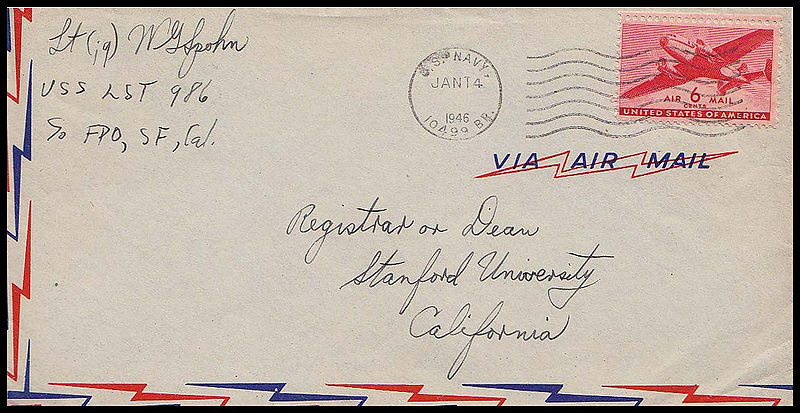 Lt (jg) W G Spohn
USS LST 986
c/o FPO, SF, Cal.
U.S. NAVY
JAN 14
1946
10499 BR.
AIR 6 MAIL
CENTS
UNITED STATES OF AMERICA
VIA AIR MAIL
Registrar or Dean
Stanford University
California